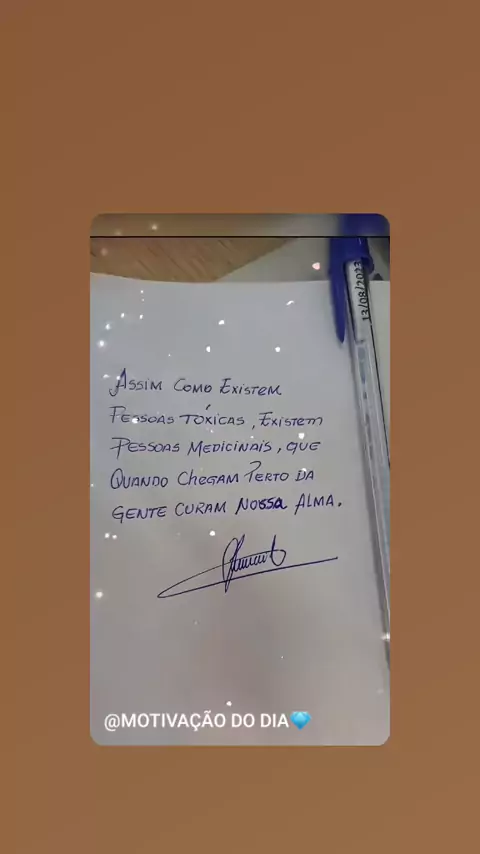 13/08/2023
Assim Como Existem
Pessoas Tóxicas, Existem
Pessoas Medicinais, que
Quando Chegam Perto da
Gente Curam Nossa Alma.
@MOTIVAÇÃO DO DIA